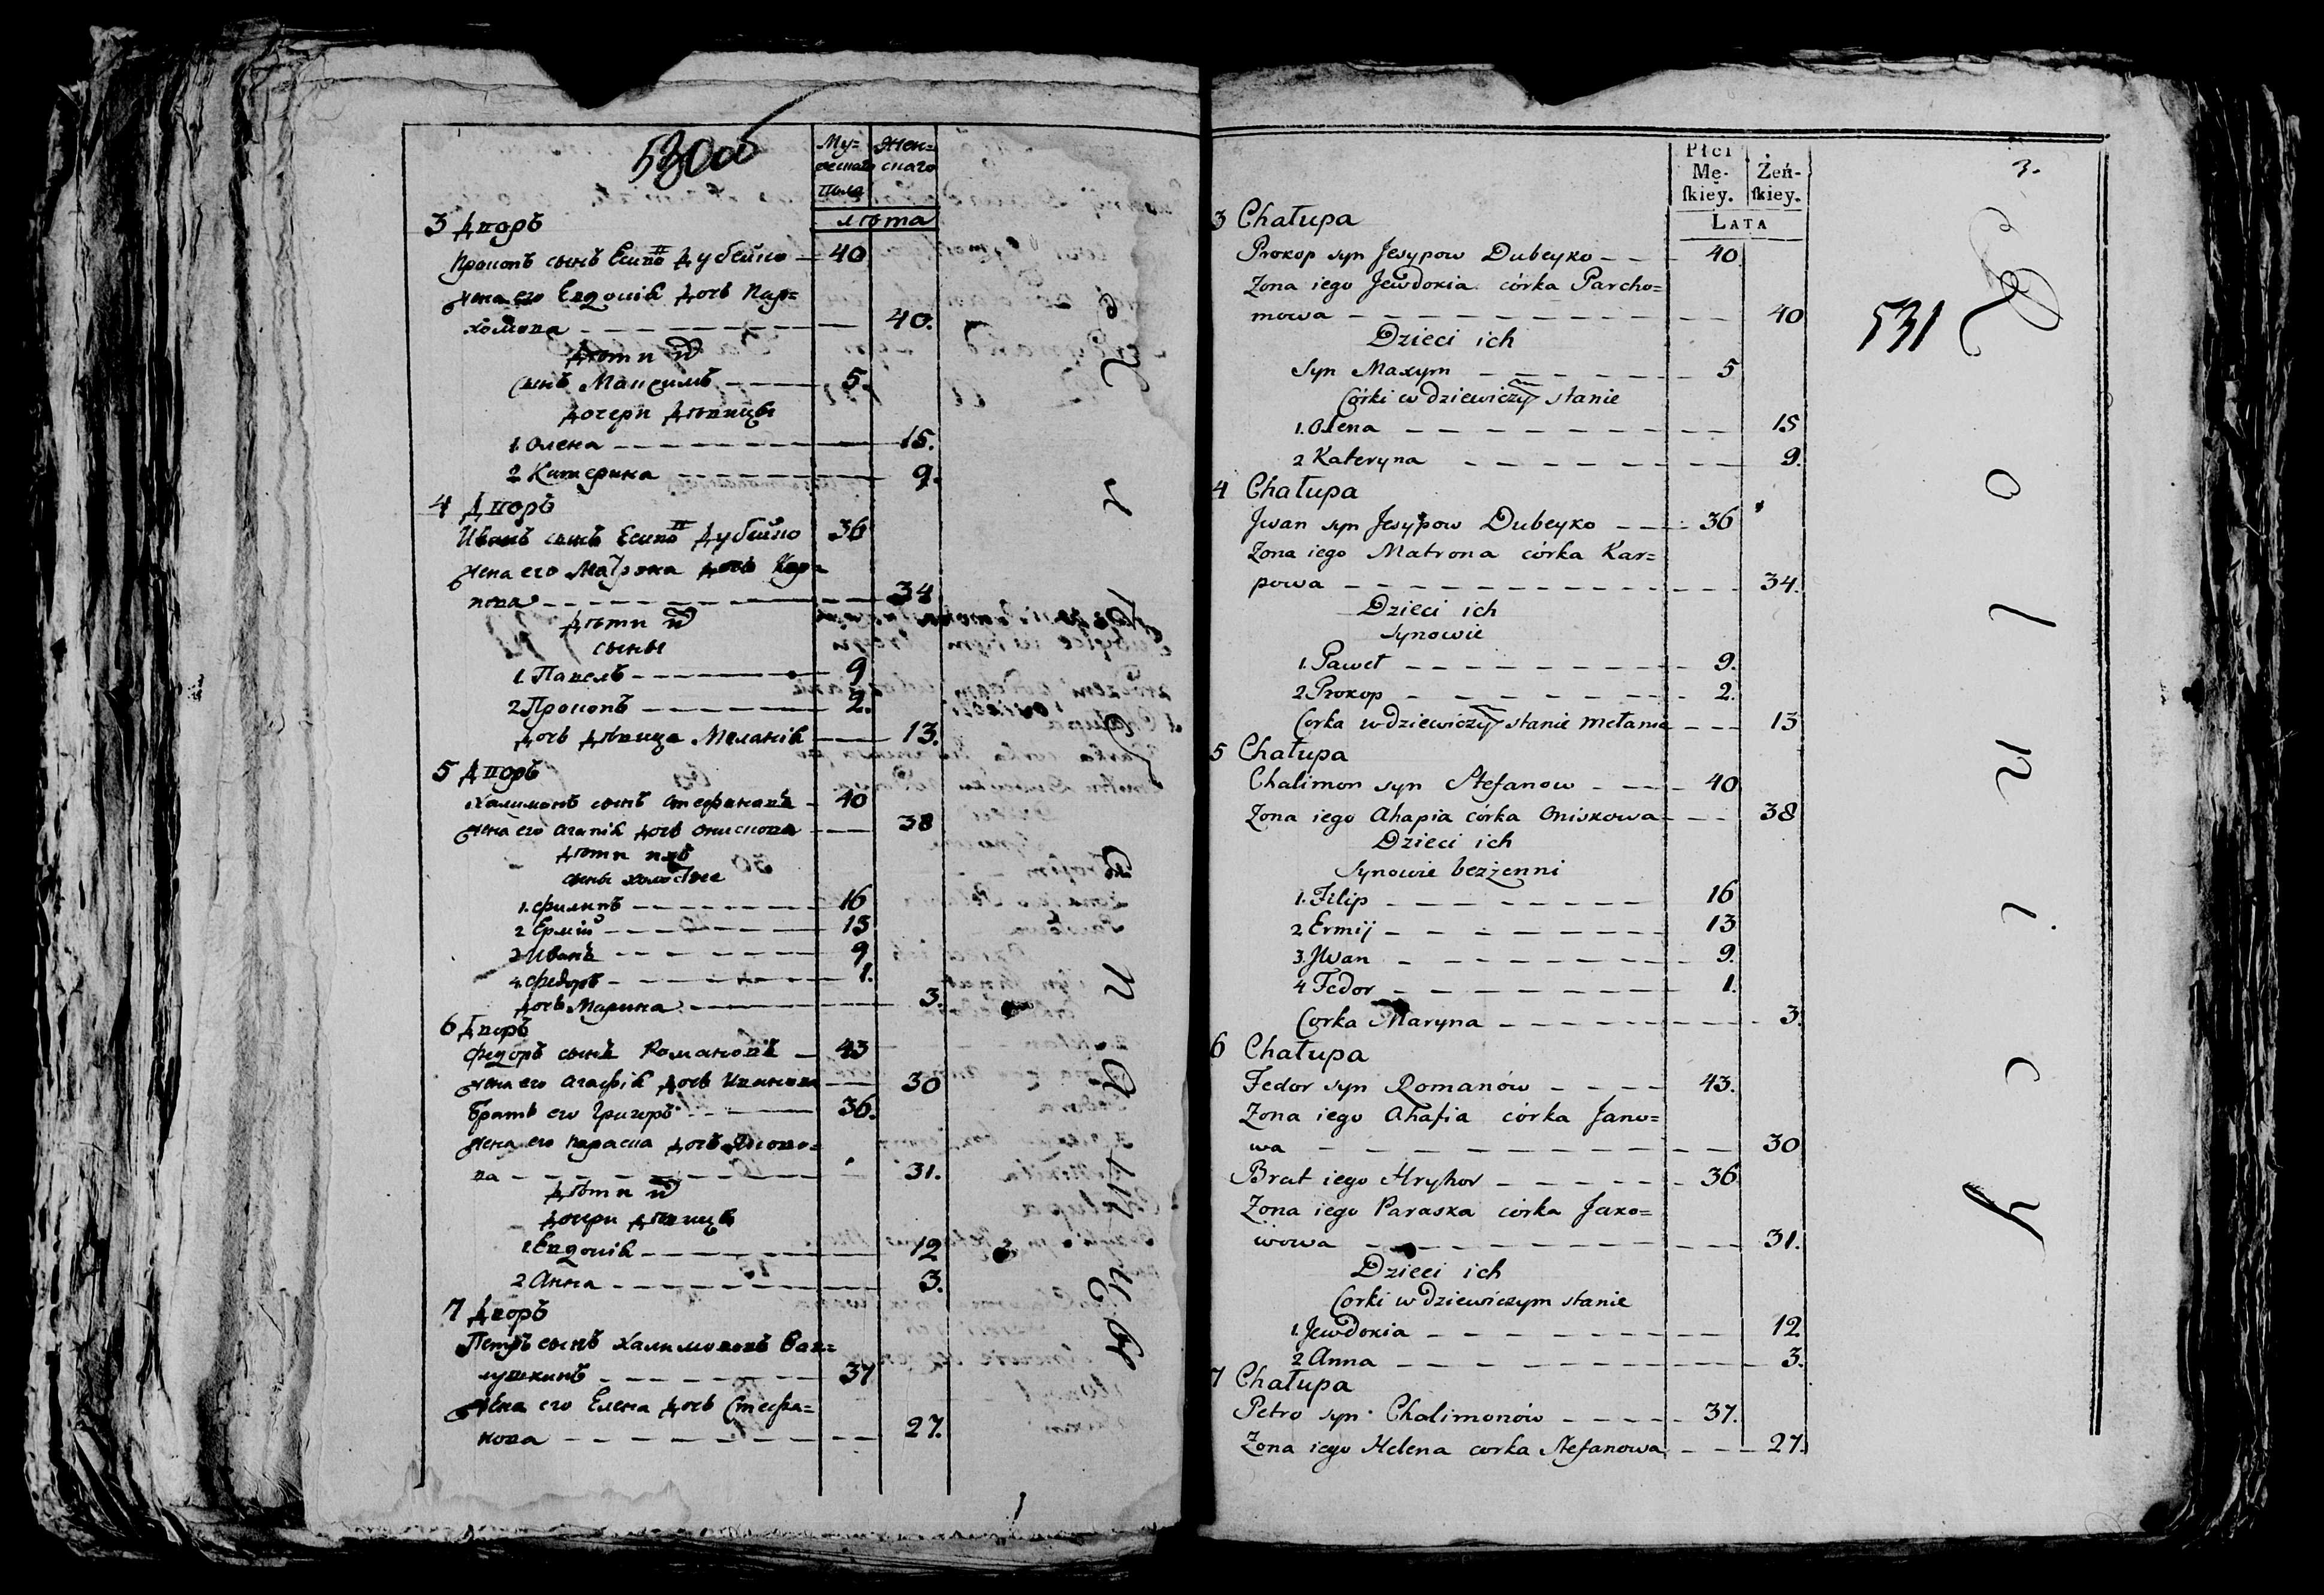 530 об
Му=
жескаго
Пола
Жен=
скаго
лѣта
3 Дворъ
Прокопъ сынъ Есиповъ Дубейко — 40
Жена его Евдокія дочь Пар=
хомова — 40.
Дѣти ихъ
Сынъ Максимъ — 5.
Дочери дѣвицы
1. Олена — 15.
2 Катерина — 9.
4 Дворъ
Иванъ сынъ Есиповъ Дубейко 36
Жена его Матрона дочь Кар=
пова — 34
Дѣти ихъ
сыны
1. Павелъ — 9
2 Прокопъ — 2.
дочь дѣвица Меланія — 13.
5 Дворъ
Халимонъ сынъ Стефановъ — 40
Жена его Агапія дочь Онискова — 38
Дѣти ихъ
сыны холостые
1. Филипъ — 16
2 Ермій — 13
3 Иванъ — 9
4. Федоръ — 1.
дочь Марина — 3.
6 Дворъ
Федоръ сынъ Романовъ — 43
Жена его Агафія дочь Иванова — 30
Братъ его Григоръ — 36.
Жена его Параска дочь Яково=
ва — 31.
Дѣти ихъ
Дочери дѣвицы
1. Евдокія — 12
2 Анна — 3.
7 Дворъ
Петръ сынъ Халимоновъ
37
Жена его Елена дочь Стефа=
нова — 27.
Płci
Mę-
ſkiey.
Żeń-
ſkiey.
LATA
3.
531
3 Chałupa
Prokop syn Jesypow Dubeyko — 40
Zona iego Jewdokia córka Parcho=
mowa — 40
Dzieci ich
Syn Maxym — 5
Córki w dziewiczym stanie
1. Olena — 15
2 Kateryna — 9.
4 Chałupa
Jwan syn Jesypow Dubeyko — 36
Zona iego Matrona córka Kar=
powa — 34.
Dzieci ich
Synowie
1. Paweł — 9.
2 Prokop — 2.
Corka w dziewiczym stanie Mełania — 13
5 Chałupa
Chalimon syn Stefanow — 40
Zona iego Ahapia córka Oniskowa — 38
Dzieci ich
Synowie bezżenni
1. Filip — 16
2 Ermij — 13
3. Jwan — 9.
4 Fedor — 1.
Corka Maryna — 3.
6 Chałupa
Fedor syn Romanów — 43.
Zona iego Ahafia córka Janu=
wa — 30
Brat iego Hryhor — 36
Zona iego Paraska córka Jako=
wowa — 31.
Dzieci ich
Corki w dziewiczym stanie
1. Jewdokia — 12
2 Anna — 3.
7 Chałupa
Petro syn Chalimonów — 37.
Zona iego Helena corka Stefanowa — 27.